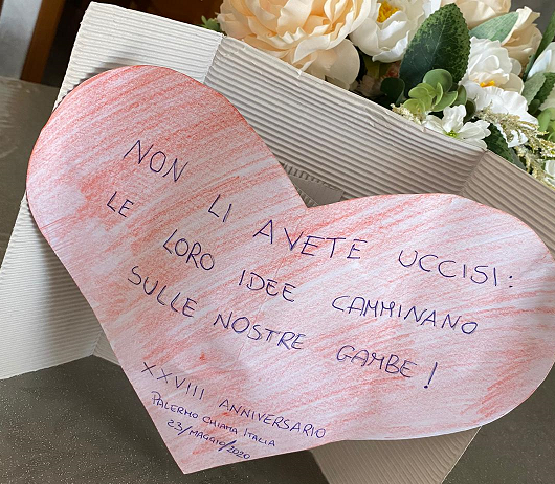 NON LI AVETE UCCISI:
LE LORO IDEE CAMMINANO
SULLE NOSTRE GAMBE!
XXVIII ANNIVERSARIO
PALERMO CHIAMA ITALIA
23/MAGGIO/2020